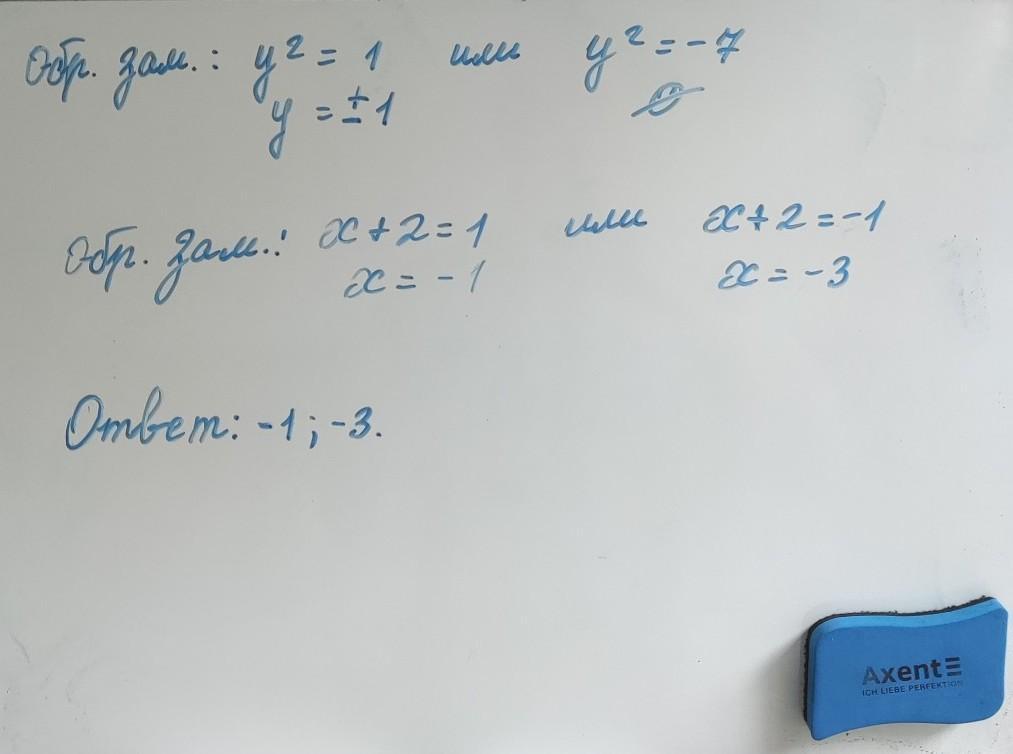 Обр. зам.: y² = 1 или y² = -7
y = ±1 ∅
Обр. зам.: x + 2 = 1 или x + 2 = -1
x = -1 x = -3
Ответ: -1; -3.
Axent
ICH LIEBE PERFEKTION